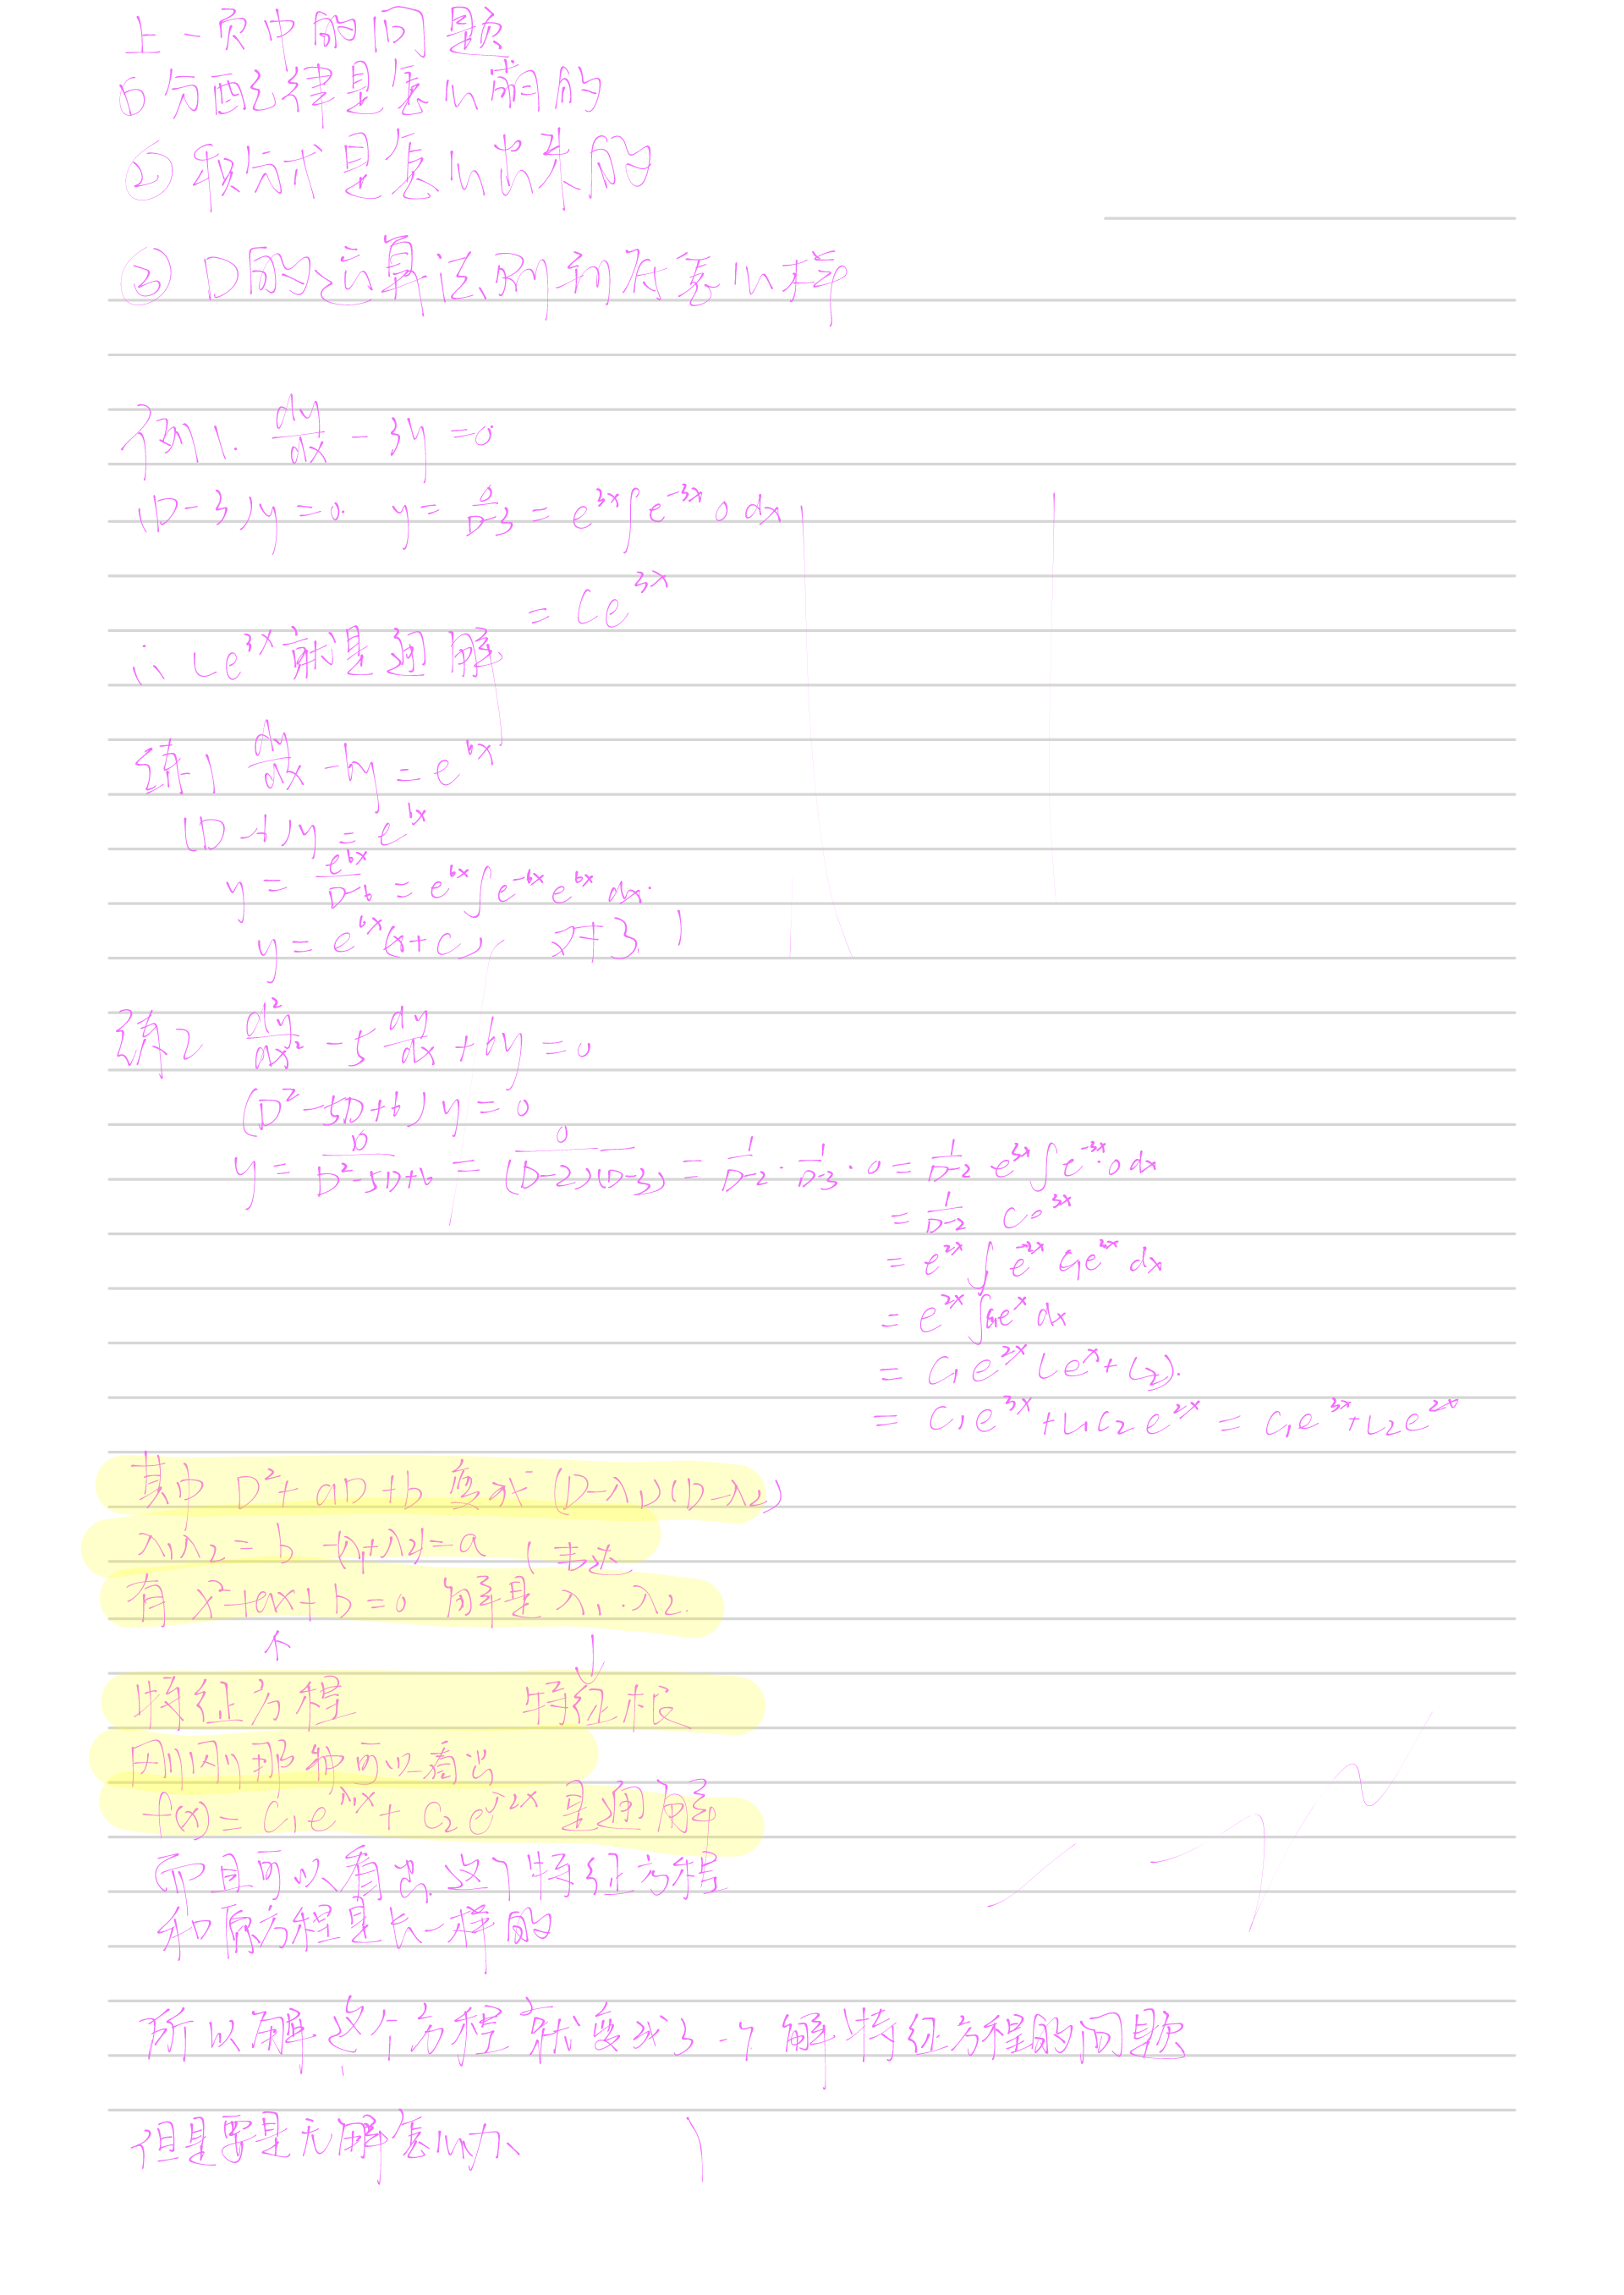 上一页中的问题
① 分配律是怎么崩的
② 积分式是怎么出来的
③ D的运算法则到底怎么样
例1. dy/dx - 3y = 0
(D-3)y = 0. y = 0/(D-3) = e^{3x}∫e^{-3x} 0 dx
= Ce^{3x}
∴ Ce^{3x} 就是通解
练1 dy/dx - 6y = e^{6x}
(D-6)y = e^{6x}
y = e^{6x}/(D-6) = e^{6x}∫e^{-6x} e^{6x} dx.
y = e^{6x}(x+C) 对了
练2 d²y/dx² - 5 dy/dx + 6y = 0
(D²-5D+6)y = 0
y = 0/(D²-5D+6) = 0/((D-2)(D-3)) = 1/(D-2) · 1/(D-3) · 0 = 1/(D-2) e^{3x}∫e^{-3x}·0 dx
= 1/(D-2) Ce^{3x}
= e^{2x}∫e^{-2x} C₁e^{3x} dx
= e^{2x}∫C₁e^x dx
= C₁e^{2x}(e^x+C₂).
= C₁e^{3x}+C₁C₂e^{2x} = C₁e^{3x}+C₂e^{2x}
其中 D²+aD+b 变成 (D-λ₁)(D-λ₂)
λ₁λ₂ = b -(λ₁+λ₂) = a (韦达
有 x²+ax+b=0 解是 λ₁.λ₂.
↑ ↓
特征方程 特征根
刚刚那种可以看出
f(x) = C₁e^{λ₁x} + C₂e^{λ₂x} 是通解
而且可以看出这个特征方程
和原方程是长一样的
所以解这个方程就变成了一个解特征方程的问题
但是要是无解怎么办